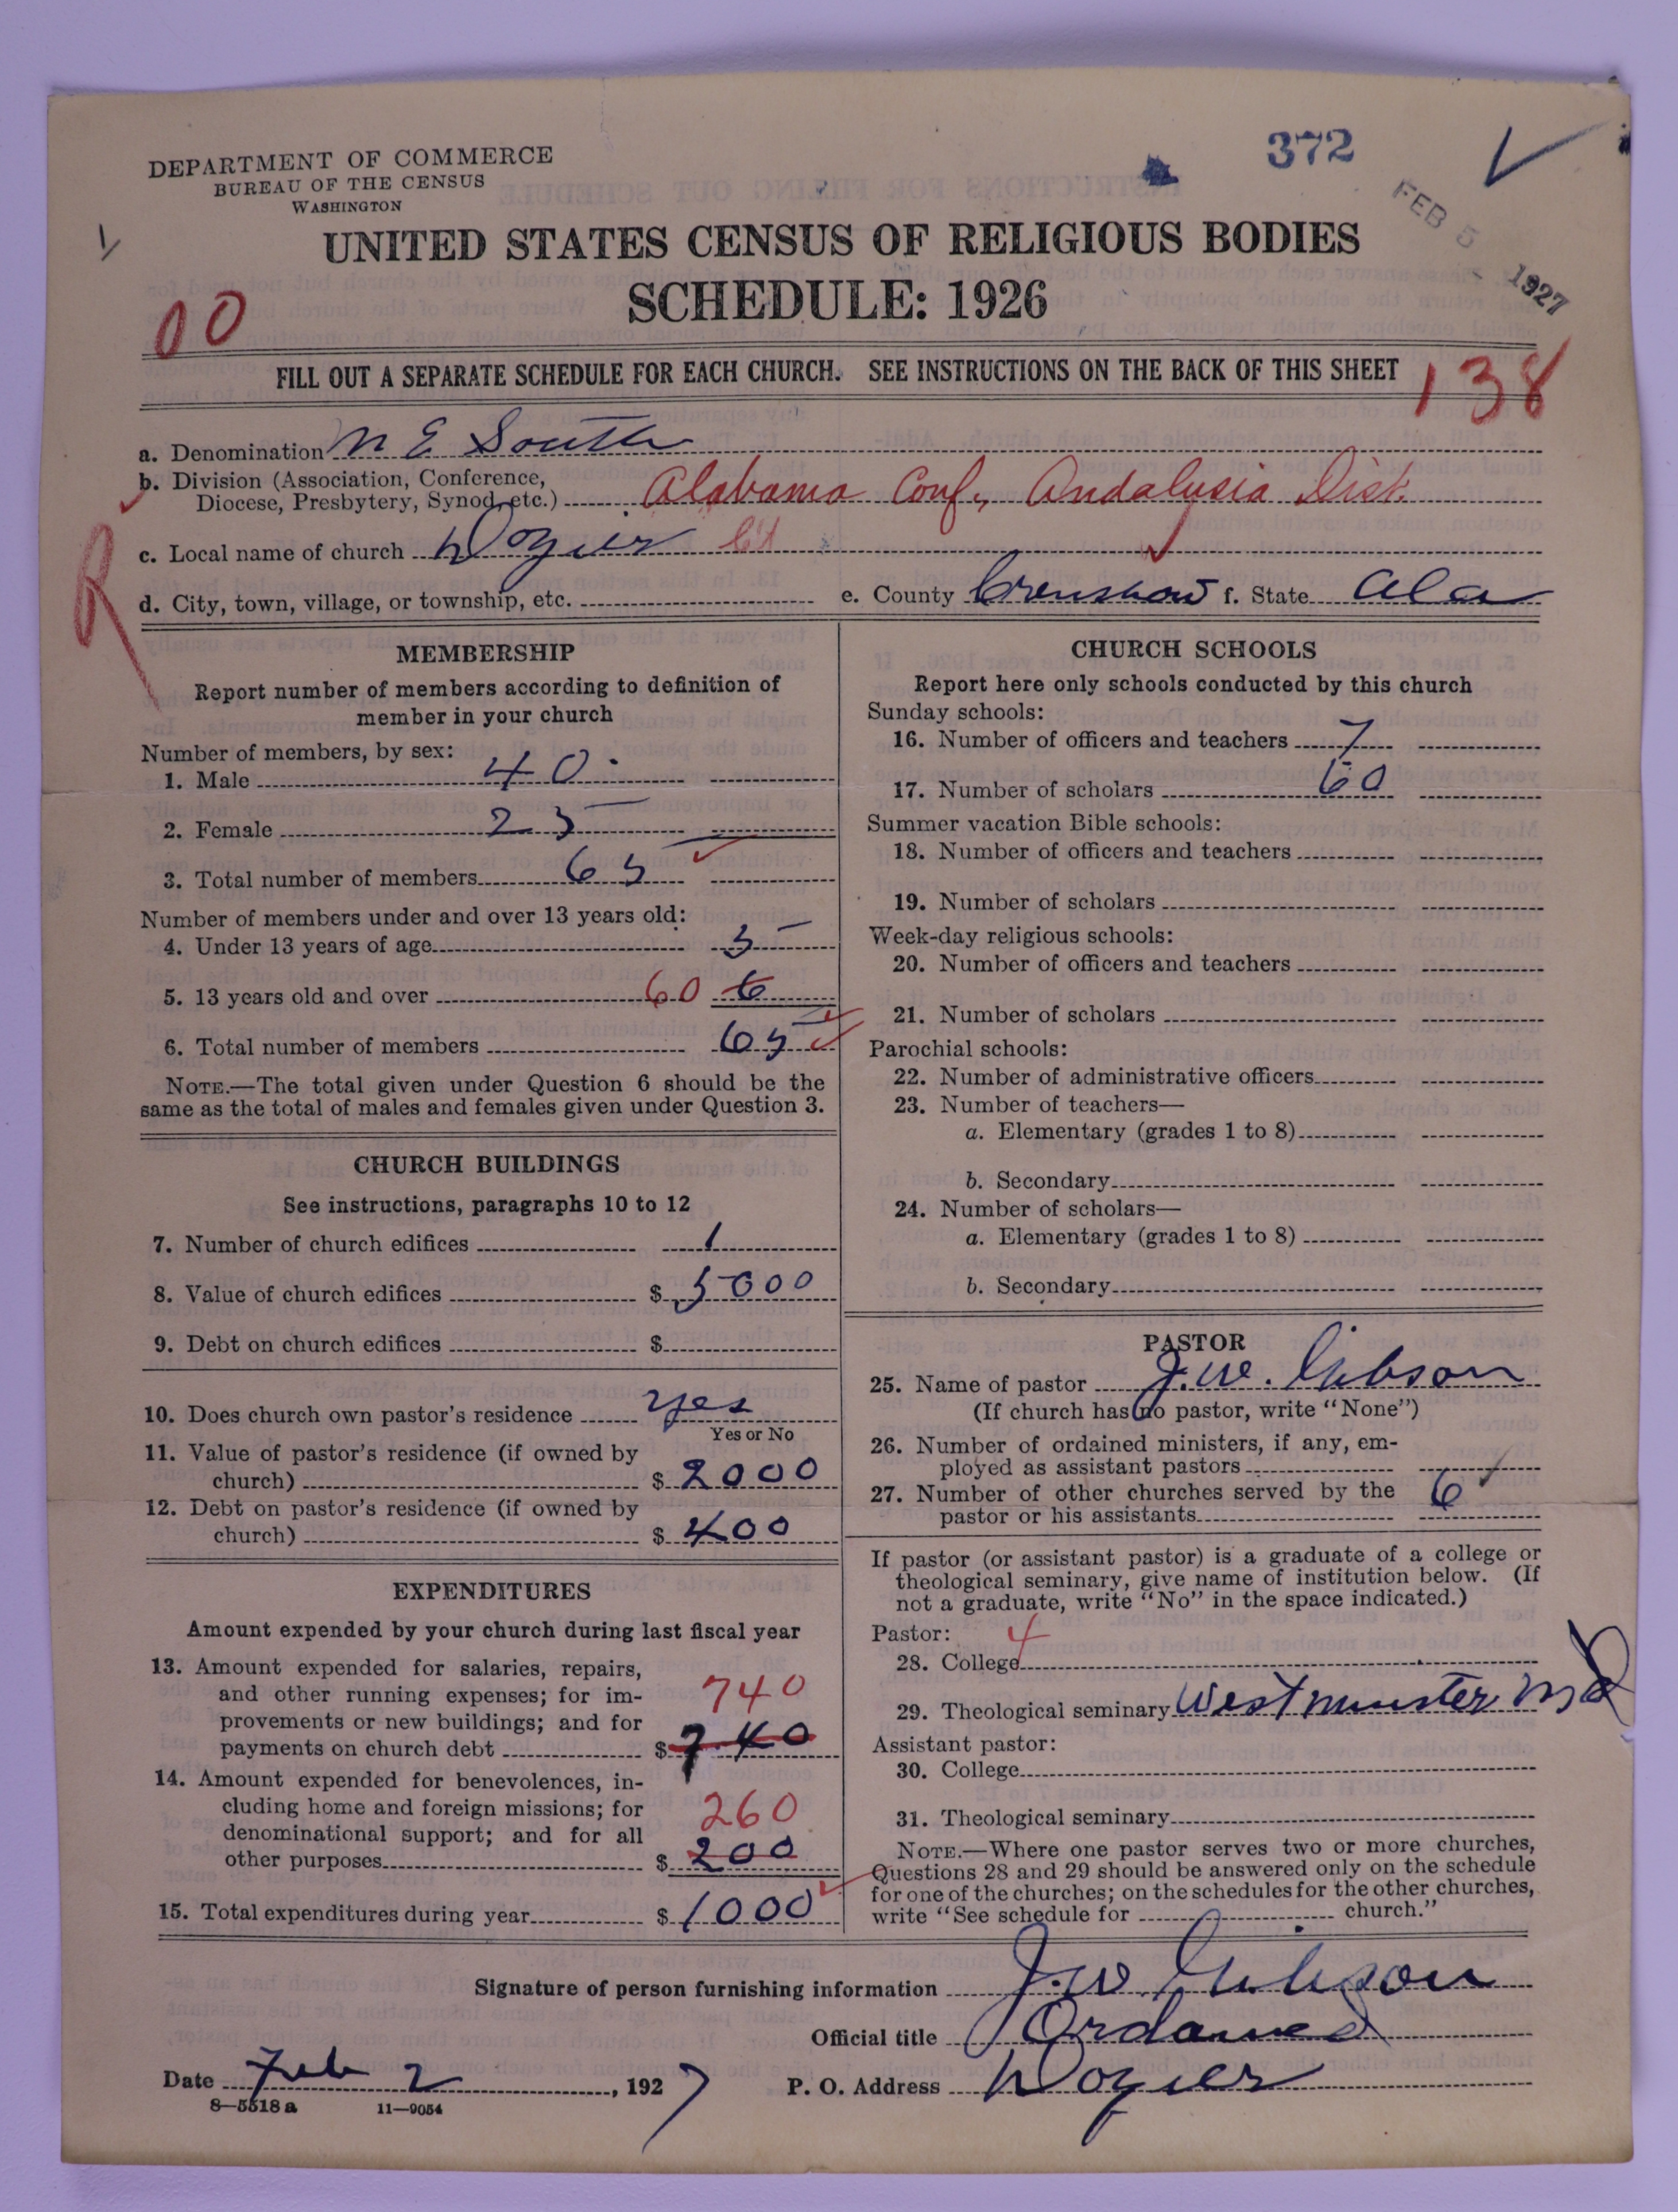 DEPARTMENT OF COMMERCE
BUREAU OF THE CENSUS
WASHINGTON
372
FEB 5 1927
UNITED STATES CENSUS OF RELIGIOUS BODIES
SCHEDULE: 1926
00
FILL OUT A SEPARATE SCHEDULE FOR EACH CHURCH. SEE INSTRUCTIONS ON THE BACK OF THIS SHEET
138
a. Denomination M E South
b. Division (Association, Conference,
Diocese, Presbytery, Synod, etc.) Alabama Conf., Andalusia Dist.
R
c. Local name of church Dozier
d. City, town, village, or township, etc. e. County Crenshaw f. State Ala
MEMBERSHIP
Report number of members according to definition of
member in your church
Number of members, by sex:
1. Male 40
2. Female 25
3. Total number of members 65
Number of members under and over 13 years old:
4. Under 13 years of age 5
5. 13 years old and over 60 6
6. Total number of members 65
NOTE.—The total given under Question 6 should be the
same as the total of males and females given under Question 3.
CHURCH BUILDINGS
See instructions, paragraphs 10 to 12
7. Number of church edifices 1
8. Value of church edifices $ 5000
9. Debt on church edifices $
10. Does church own pastor's residence yes
Yes or No
11. Value of pastor's residence (if owned by
church) $ 2000
12. Debt on pastor's residence (if owned by
church) $ 400
EXPENDITURES
Amount expended by your church during last fiscal year
13. Amount expended for salaries, repairs,
and other running expenses; for im-
provements or new buildings; and for
payments on church debt $ 740
740
14. Amount expended for benevolences, in-
cluding home and foreign missions; for
denominational support; and for all
other purposes $ 200
260
15. Total expenditures during year $ 1000
CHURCH SCHOOLS
Report here only schools conducted by this church
Sunday schools:
16. Number of officers and teachers 7
17. Number of scholars 60
Summer vacation Bible schools:
18. Number of officers and teachers
19. Number of scholars
Week-day religious schools:
20. Number of officers and teachers
21. Number of scholars
Parochial schools:
22. Number of administrative officers
23. Number of teachers—
a. Elementary (grades 1 to 8)
b. Secondary
24. Number of scholars—
a. Elementary (grades 1 to 8)
b. Secondary
PASTOR
25. Name of pastor J. W. Gibson
(If church has no pastor, write "None")
26. Number of ordained ministers, if any, em-
ployed as assistant pastors
27. Number of other churches served by the
pastor or his assistants 6
If pastor (or assistant pastor) is a graduate of a college or
theological seminary, give name of institution below. (If
not a graduate, write "No" in the space indicated.)
Pastor: 4
28. College
29. Theological seminary Westminster Md
Assistant pastor:
30. College
31. Theological seminary
NOTE.—Where one pastor serves two or more churches,
Questions 28 and 29 should be answered only on the schedule
for one of the churches; on the schedules for the other churches,
write "See schedule for church."
Signature of person furnishing information J. W. Gibson
Official title Ordained
Date Feb 2, 1927 P. O. Address Dozier
8—5518a 11—9054